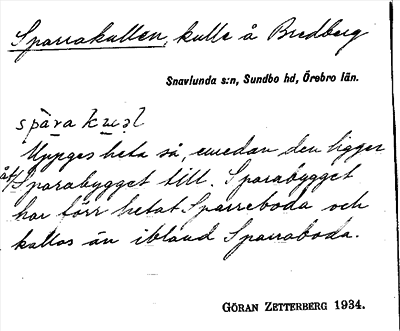 Sparrakullen, kulle å Bredberg
Snavlunda s:n, Sundbo hd, Örebro län.
spàra
Uppges heta så, emedan den ligger
åt Sparabygget till. Sparabygget
har förr hetat Sparreboda och
kallas än ibland Sparraboda.
GÖRAN ZETTERBERG 1934.